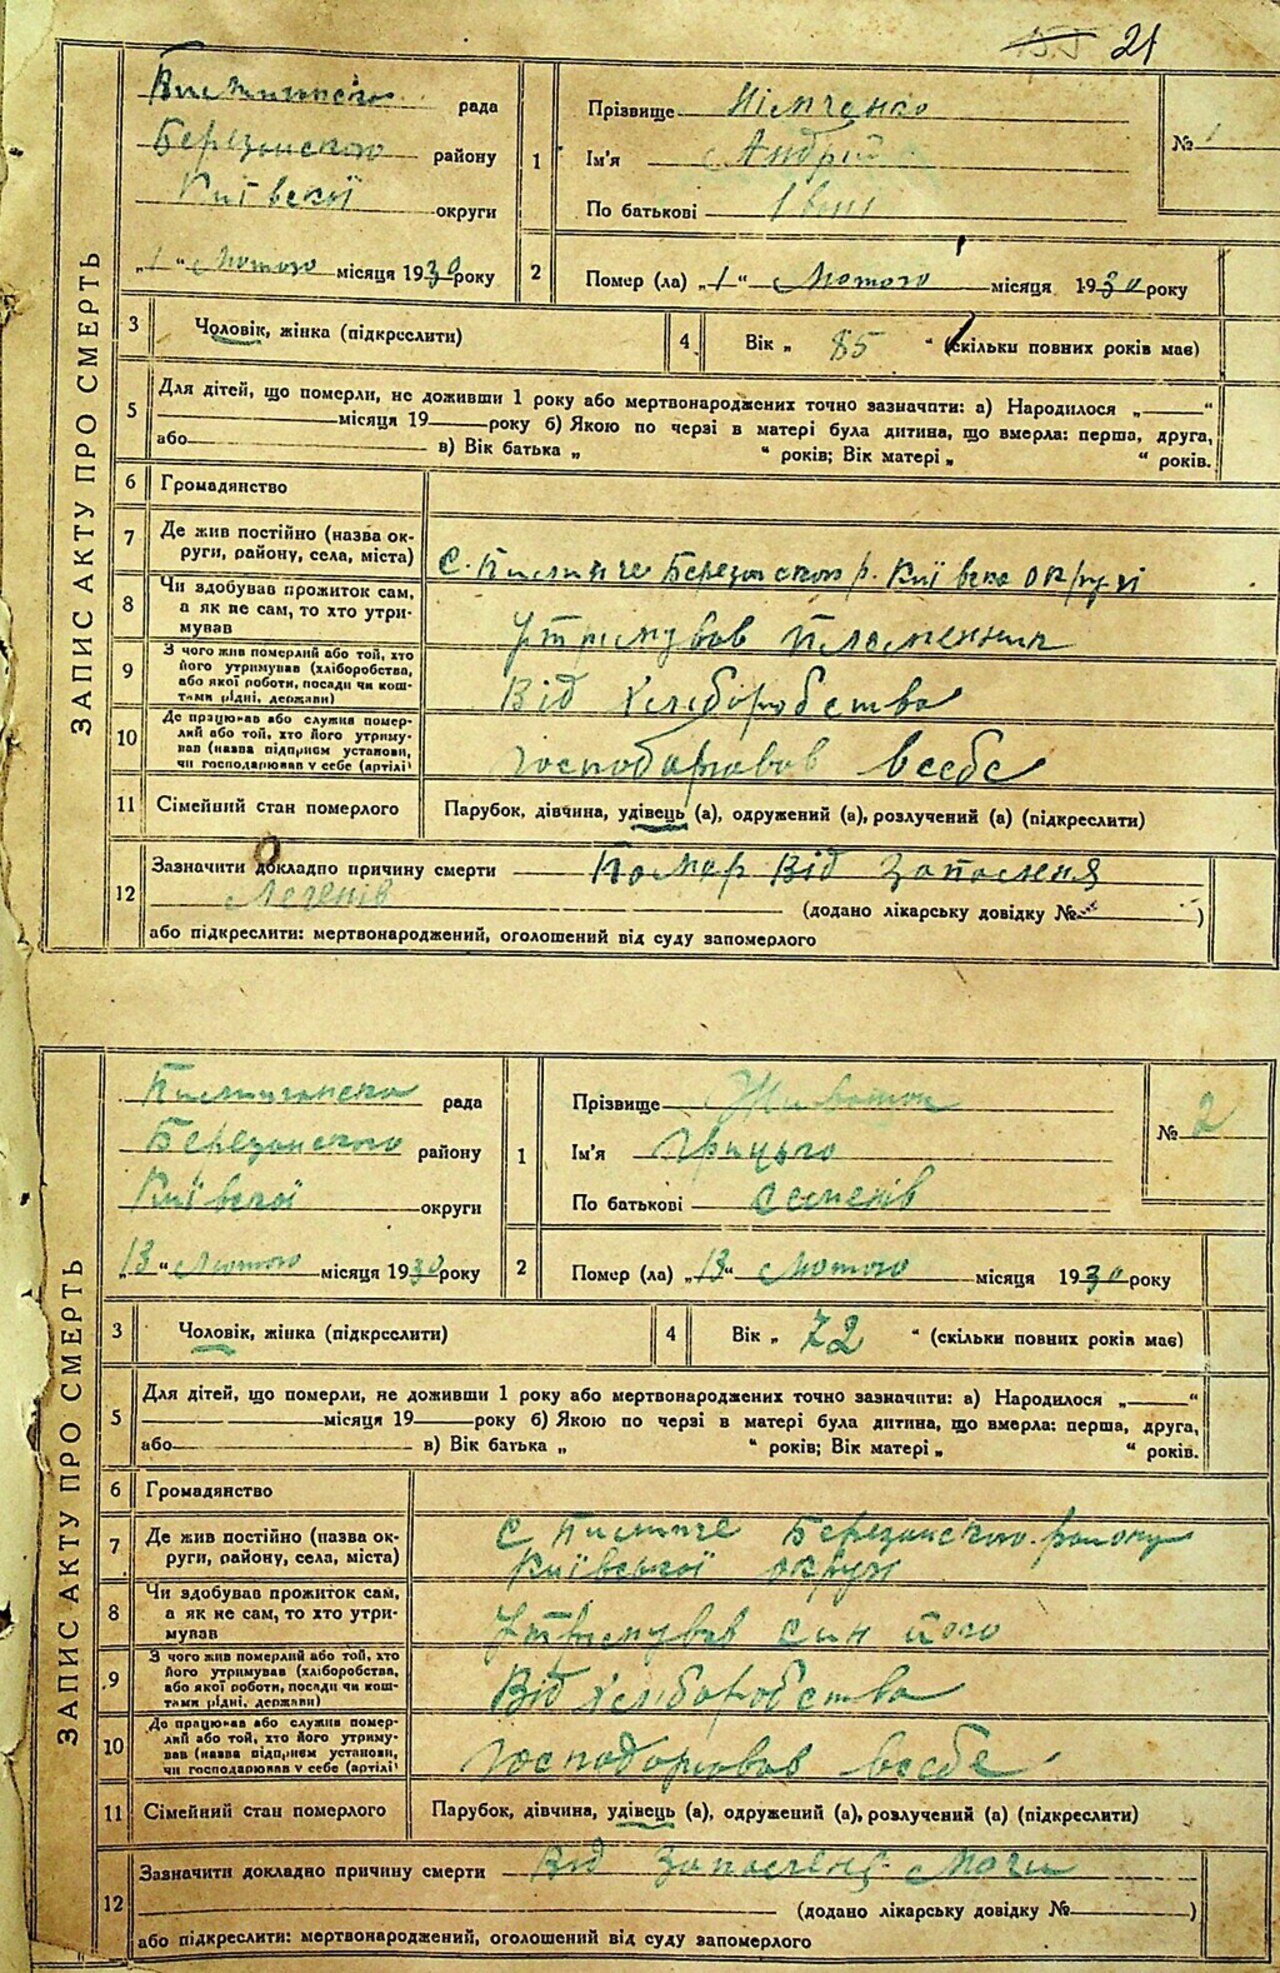 21
ЗАПИС АКТУ ПРО СМЕРТЬ
рада
Березанского району
Київскої округи
„1“ Лютого місяця 1930 року
1
Прізвище Німченко
Ім'я Андрій
По батькові Іван
№ 1
2
Помер (ла) „1“ Лютого місяця 1930 року
3 Чоловік, жінка (підкреслити)
4 Вік „85“ (скільки повних років має)
5 Для дітей, що померли, не доживши 1 року або мертвонароджених точно зазначити: а) Народилося „ “
місяця 19 року б) Якою по черзі в матері була дитина, що вмерла: перша, друга,
або в) Вік батька „ “ років; Вік матері „ “ років.
6 Громадянство
7 Де жив постійно (назва ок-
руги, району, села, міста)
С. Березанского р. Київско округи
8 Чи здобував прожиток сам,
а як не сам, то хто утри-
мував
Утримував племенник
9 З чого жив померлий або той, хто
його утримував (хліборобства,
або якої роботи, посади чи кош-
тами рідні, держави)
Від хліборобства
10 Де працював або служив помер-
лий або той, хто його утриму-
вав (назва підприєм установи,
чи господарював у себе (артілі)
господарював всебе
11 Сімейний стан померлого
Парубок, дівчина, удівець (а), одружений (а), розлучений (а) (підкреслити)
12 Зазначити докладно причину смерти Помер Від Запаленя
Легенів (додано лікарську довідку № )
або підкреслити: мертвонароджений, оголошений від суду запомерлого
ЗАПИС АКТУ ПРО СМЕРТЬ
рада
Березанского району
Київскої округи
„13“ Лютого місяця 1930 року
1
Прізвище
Ім'я Грицько
По батькові Семенів
№ 2
2
Помер (ла) „13“ Лютого місяця 1930 року
3 Чоловік, жінка (підкреслити)
4 Вік „72“ (скільки повних років має)
5 Для дітей, що померли, не доживши 1 року або мертвонароджених точно зазначити: а) Народилося „ “
місяця 19 року б) Якою по черзі в матері була дитина, що вмерла: перша, друга,
або в) Вік батька „ “ років; Вік матері „ “ років.
6 Громадянство
7 Де жив постійно (назва ок-
руги, району, села, міста)
С Березанского району
Київської округи
8 Чи здобував прожиток сам,
а як не сам, то хто утри-
мував
Утримував син його
9 З чого жив померлий або той, хто
його утримував (хліборобства,
або якої роботи, посади чи кош-
тами рідні, держави)
Від хліборобства
10 Де працював або служив помер-
лий або той, хто його утриму-
вав (назва підприєм установи,
чи господарював у себе (артілі)
Господарював всебе
11 Сімейний стан померлого
Парубок, дівчина, удівець (а), одружений (а), розлучений (а) (підкреслити)
12 Зазначити докладно причину смерти Від Запаленя
(додано лікарську довідку № )
або підкреслити: мертвонароджений, оголошений від суду запомерлого